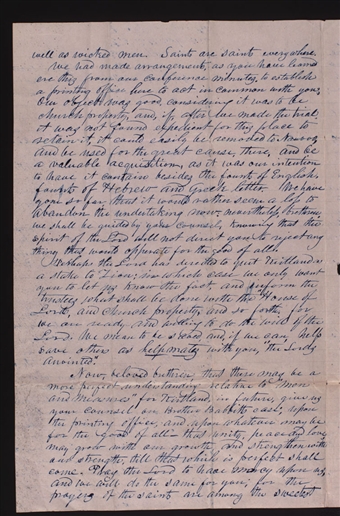 well as wicked men. Saints are saints everywhere.
We had made arrangements, as you have learned
ere this from our conference minutes, to establish
a printing office here to act in common with you;
Our object was good, considering it was to be
church property, and, if, after we made the trial,
it was not found expedient for this place to
retain it, it could easily be removed to Nauvoo
and be used for the great cause, there, and be
a valuable acquisition, as it was our intention
to have it contain besides the founts of English,
founts of Hebrew and Greek letter. We have
gone so far, that it would rather seem a loss to
abandon the undertaking now: nevertheless, brethren,
we shall be guided by your counsel, knowing that the
spirit of the Lord will not direct you to reject any
thing that would operate for the good of all.
Perhaps the Lord has decreed to quit Kirtland as
a stake to Zion; in which case we only want
you to let us know the fact, and inform the
Trustees what shall be done with the House of
Lord, and Church property, and so forth, for
we are ready and willing to do the will of the
Lord. We mean to be and if we can, help
save others as helpmates with you, the Lord's
anointed.
Now, beloved brethren, that there may be a
more perfect understanding relative to "Men
and Measures" for Kirtland, in future, give us
your counsel on Brother Babbitt's case; upon
the printing office; and upon whatever may be
for the good of all: that unity, peace and love
may grow with our growth, and strengthen with
our strength, till that which is perfect shall
come. Pray the Lord to have mercy upon us,
and we will do the same for you; for the
prayers of the saints are among the sweetest